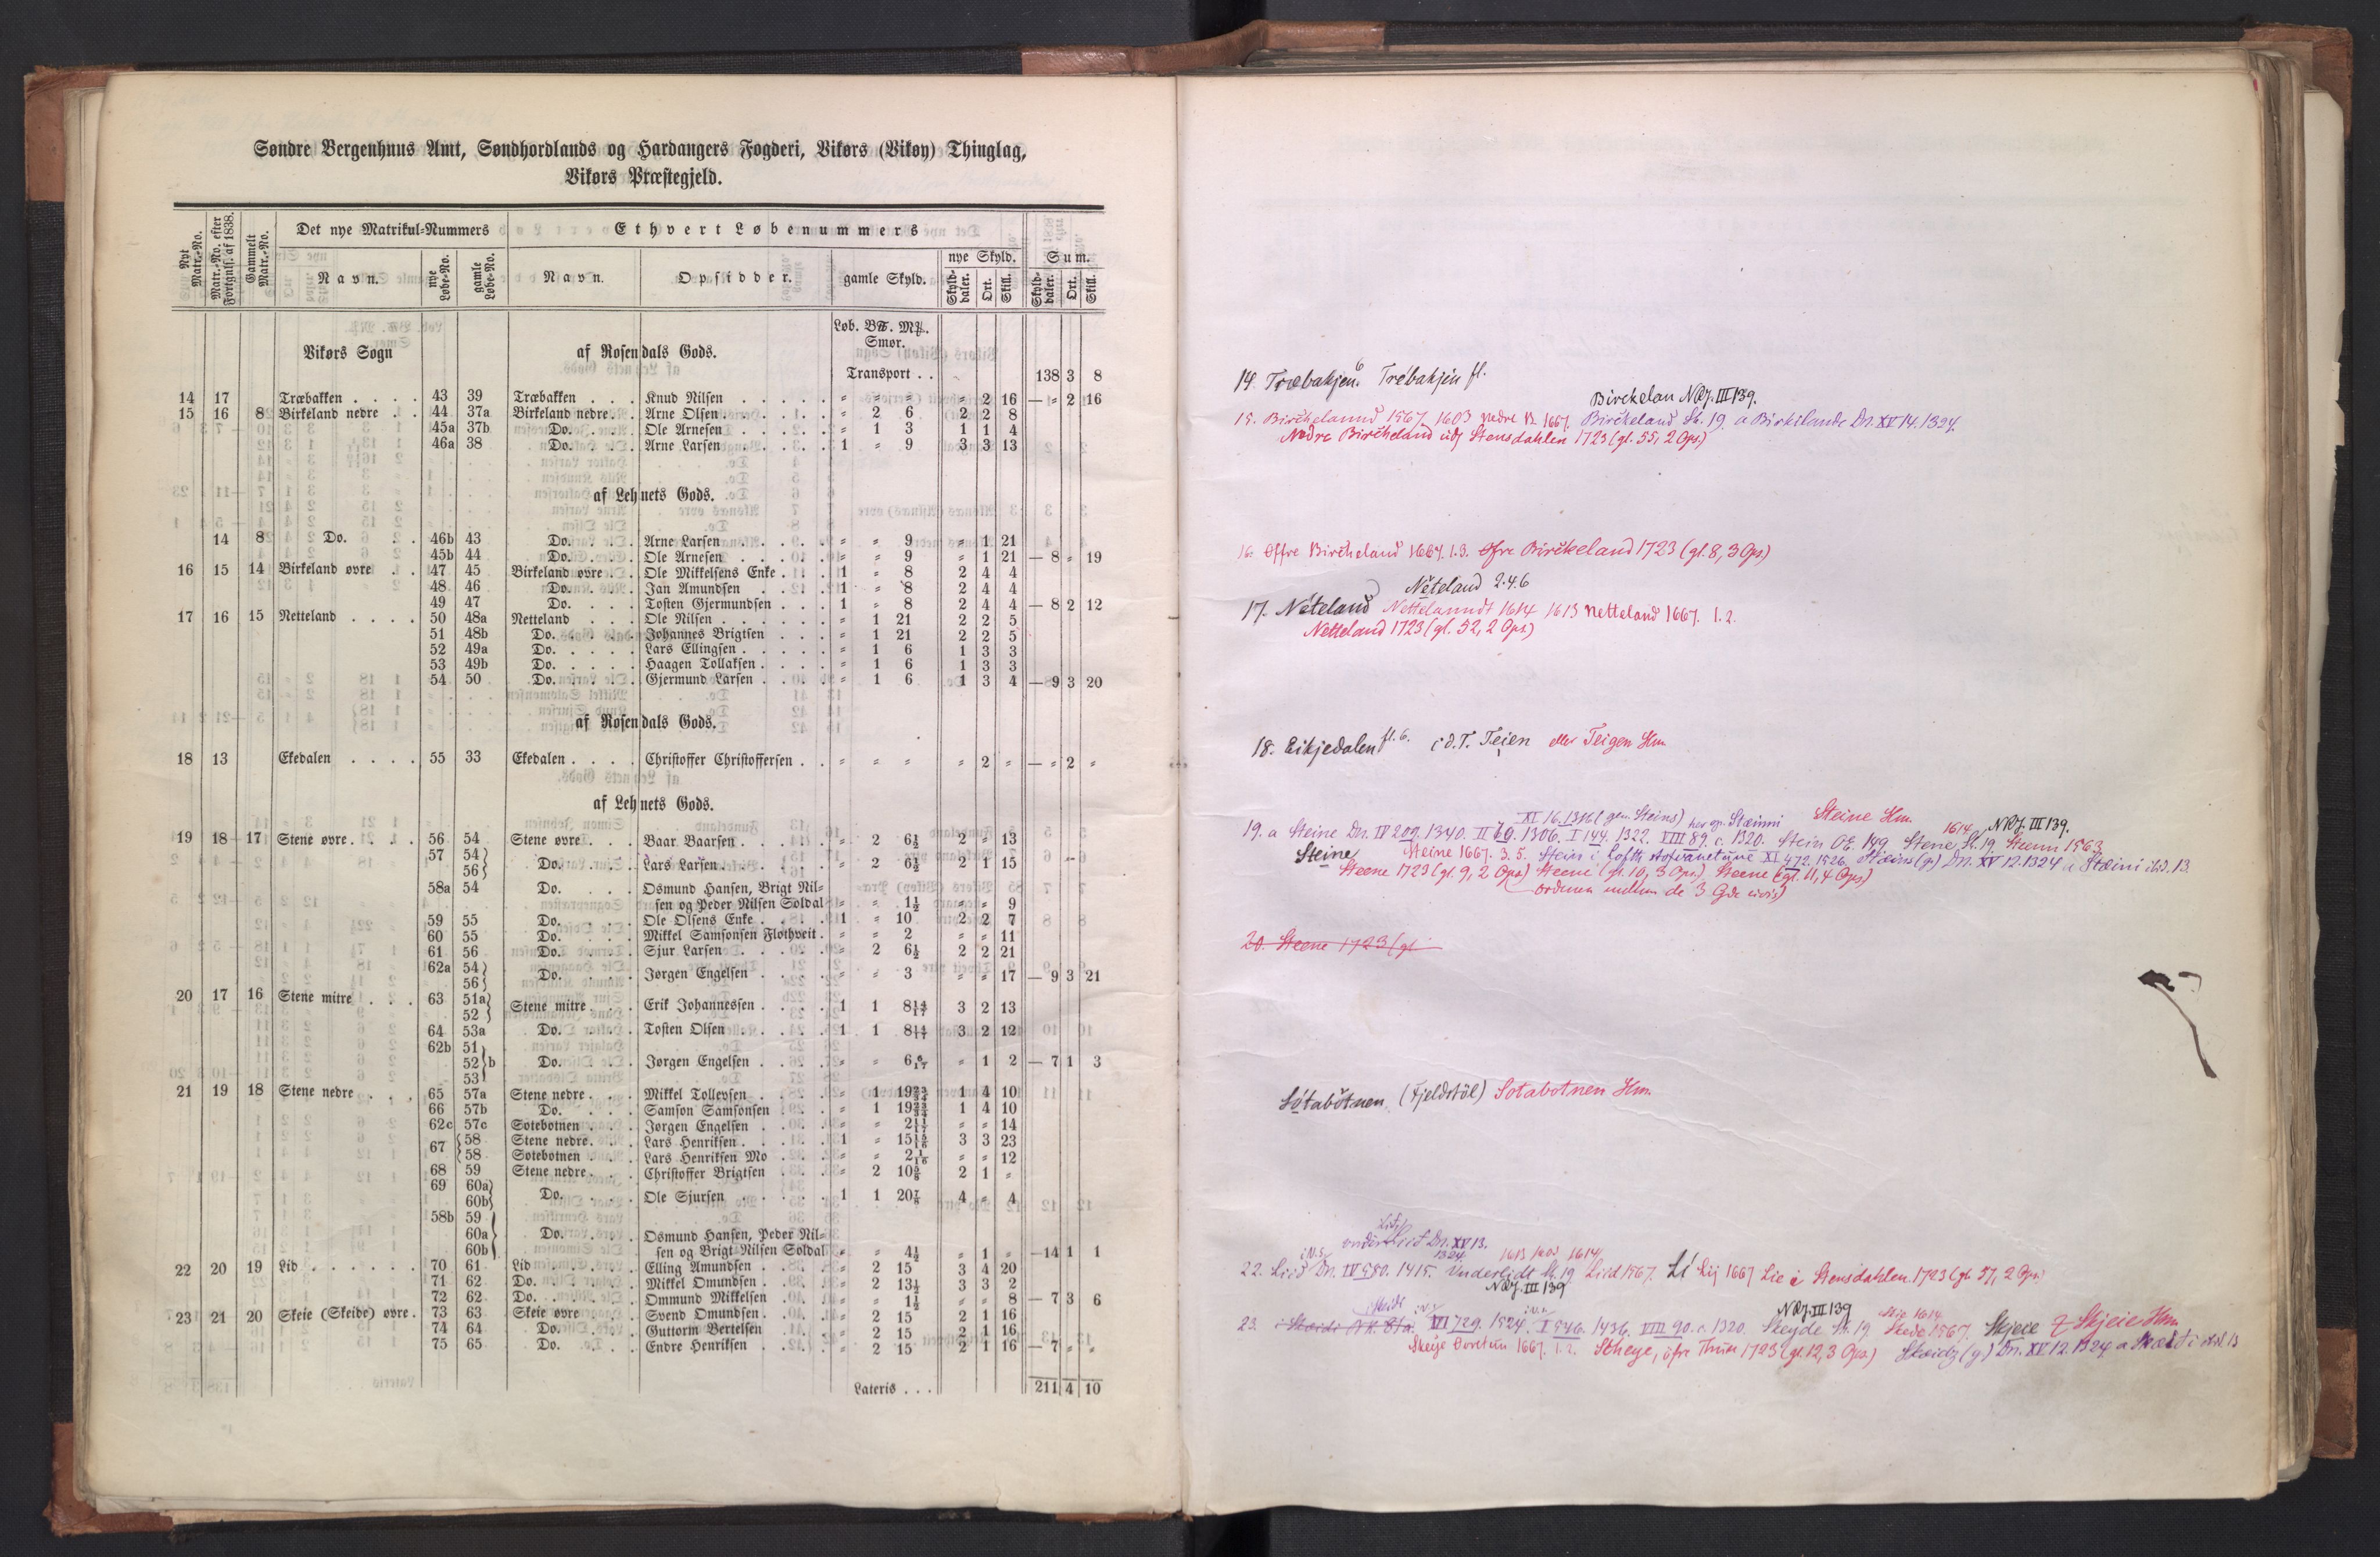 Søndre Bergenhuus Amt, Søndhordlands og Hardangers Fogderi, Vikørs (Vikøy) Thinglag,
Vikørs Præstegjeld.
Nye Matr.-No. | Matr.-No. efter Fortegnls. af 1838. | Gammelt Matr.-No. | Det nye Matrikul-Nummers | Ethvert Løbenummers
Navn. | nye Løbe-No. | gamle Løbe-No. | Navn. | Opsidder. | gamle Skyld. | nye Skyld. | Sum.
Skyld-daler. | Ort. | Skill. | Skyld-daler. | Ort. | Skill.
Løb. B℔. M℔.
Smør.
Vikørs Sogn af Rosendals Gods.
Transport . . 138 3 8
14 17 Træbakken . . . . 43 39 Træbakken . . . Knud Nilsen . . . . . " " " " 2 16 — " 2 16
15 16 8 Birkeland nedre . . 44 37a Birkeland nedre . . Arne Olsen . . . . . " 2 6 2 2 8
45a 37b Do. . . . Ole Arnesen . . . . . " 1 3 1 1 4
46a 38 Do. . . . Arne Larsen . . . . . 1 " 9 3 3 13
af Lehnets Gods.
14 8 Do. . . 46b 43 Do. . . . Arne Larsen . . . . . " " 9 " 1 21
45b 44 Do. . . . Ole Arnesen . . . . . " " 9 " 1 21 — 8 " 19
16 15 14 Birkeland øvre . . 47 45 Birkeland øvre . . Ole Mikkelsens Enke . . . 1 " 8 2 4 4
48 46 Do. . . . Jan Amundsen . . . . 1 " 8 2 4 4
49 47 Do. . . . Tosten Gjermundsen . . . 1 " 8 2 4 4 — 8 2 12
17 16 15 Netteland . . . . 50 48a Netteland . . . Ole Nilsen . . . . . . " 1 21 2 2 5
51 48b Do. . . . . Johannes Brigtsen . . . " 1 21 2 2 5
52 49a Do. . . . . Lars Ellingsen . . . . . " 1 6 1 3 3
53 49b Do. . . . . Haagen Tollaksen . . . . " 1 6 1 3 3
54 50 Do. . . . . Gjermund Larsen . . . . " 1 6 1 3 4 — 9 3 20
af Rosendals Gods.
18 13 Ekedalen . . . . 55 33 Ekedalen . . . . Christoffer Christoffersen . . " " " " 2 " — " 2 "
af Lehnets Gods.
19 18 17 Stene øvre . . . . 56 54 Stene øvre . . . Baar Baarsen . . . . . " 2 6½ 2 " 13
57 54 56 Do. . . . Lars Larsen . . . . . " 2 6½ 2 1 15
58a 54 Do. . . . Osmund Hansen, Brigt Nil-
sen og Peder Nilsen Soldal " " 1½ " " 9
59 55 Do. . . . Ole Olsens Enke . . . . 1 " 10 2 2 7
60 55 Do. . . . Mikkel Samsonsen Flothveit . " " 2 " " 11
61 56 Do. . . . Sjur Larsen . . . . . " 2 6½ 2 2 21
62a 54 56 Do. . . . Jørgen Engelsen . . . . " " 3 " " 17 — 9 3 21
20 17 16 Stene mitre . . . 63 51a 52 Stene mitre . . . Erik Johannessen . . . . 1 1 8 14/17 3 2 13
64 53a Do. . . . Tosten Olsen . . . . . 1 1 8 14/17 3 2 12
62b 51 52 53 b Do. . . . Jørgen Engelsen . . . . " " 6 6/17 " 1 2 — 7 1 3
21 19 18 Stene nedre . . . 65 57a Stene nedre . . . Mikkel Tollevsen . . . . " 1 19 23/34 1 4 10
66 57b Do. . . . Samson Samsonsen . . . " 1 19 23/34 1 4 10
62c 57c Sotebotnen . . . Jørgen Engelsen . . . . " " 2 11/17 " " 14
67 58 Stene nedre . . . Lars Henriksen . . . . . 1 " 15 15/16 3 3 23
58 Sotebotnen . . . Lars Henriksen Mo . . . " " 2 1/16 " " 12
68 59 Stene nedre . . . Christoffer Brigtsen . . . " 2 10⅝ 2 1 "
69 60a 60b Do. . . . Ole Sjursen . . . . . 1 1 20⅞ 4 " 4
58b 59 60a 60b Do. . . . Osmund Hansen, Peder Nil-
sen og Brigt Nilsen Soldal " " 4½ " 1 " — 14 1 1
22 20 19 Lid . . . . . . 70 61 Lid . . . . . Elling Amundsen . . . . " 2 15 3 4 20
71 62 Do. . . . . . Mikkel Omundsen . . . . " 2 13½ 3 3 2
72 62 Do. . . . . . Ommund Mikkelsen . . . " " 1½ " " 8 — 7 3 6
23 21 20 Skeie (Skeide) øvre . 73 63 Skeie øvre . . . Svend Omundsen . . . . " 2 15 2 1 16
74 64 Do. . . . Guttorm Bertelsen . . . " 2 15 2 1 16
75 65 Do. . . . Endre Henriksen . . . . " 2 15 2 1 16 — 7 " "
Lateris . . . 211 4 10
14. Træbakjen 6 Trebakjen fl.
Birckelan NRJ. III 139.
15. Birckelannd 1567, 1603 Nedre B. 1667. Birckeland St. 19. a Birkilande Dn. XV 14. 1324.
Nedre Birckeland udj Stensdahlen 1723 (gl. 55, 2 Ops.)
16. Øffre Birckeland 1667. 1.3. Øfre Birckeland 1723 (gl. 8, 3 Ops.)
Neteland 2.4.6
17. Neteland Nettelanndt 1614 1613 Netteland 1667. 1.2.
Netteland 1723 (gl. 52, 2 Ops.)
18. Eikjedalen fl. 6. i d. T. Teien eller Teigen Hm.
XI 16. 1316 (gen. Steins) Stæinni Steine Hm. 1614 NRJ. III 139.
19. a Steine Dn. IV 209. 1340. II 70. 1306. I 144. 1322. VIII 89. c. 1320. Stein OE. 149 Stene St. 19. Steenn 1563
Steine Steine 1667. 3. 5. Stein i XI 472. 1526. Stæins (g) Dn. XV 12. 1324 a Stæini ibid. 13.
Steene 1723 (gl. 9, 2 Ops.) Steene (gl. 10, 3 Ops.) Steene (gl. 11, 4 Ops.)
ordnen mellem de 3 Gde uvis)
20. Steene 1723 (gl.
Sotabotnen (Fjeldstøl) Sotabotnen Hm.
Dn. XV 13.
1324 1613 1603 1614
22. Liid Dn. IV 580. 1415. Underlidt St. 19 Liid 1567. Li Lij 1667 Lie i Stensdahlen 1723 (gl. 57, 2 Ops.)
NRJ. III 139
NRJ. III 139 1614
23. i Skeidi BK. 81a. VI 729. 1524. I 546. 1436. VIII 90. c. 1320. Skeyde St. 19 Skede 1567. Skjeie Skjeie Hm
Skeije 1667. 1.2. Scheye, øfre 1723 (gl. 12, 3 Ops.) Skeidz (g) Dn. XV 12. 1324 a ibid 13